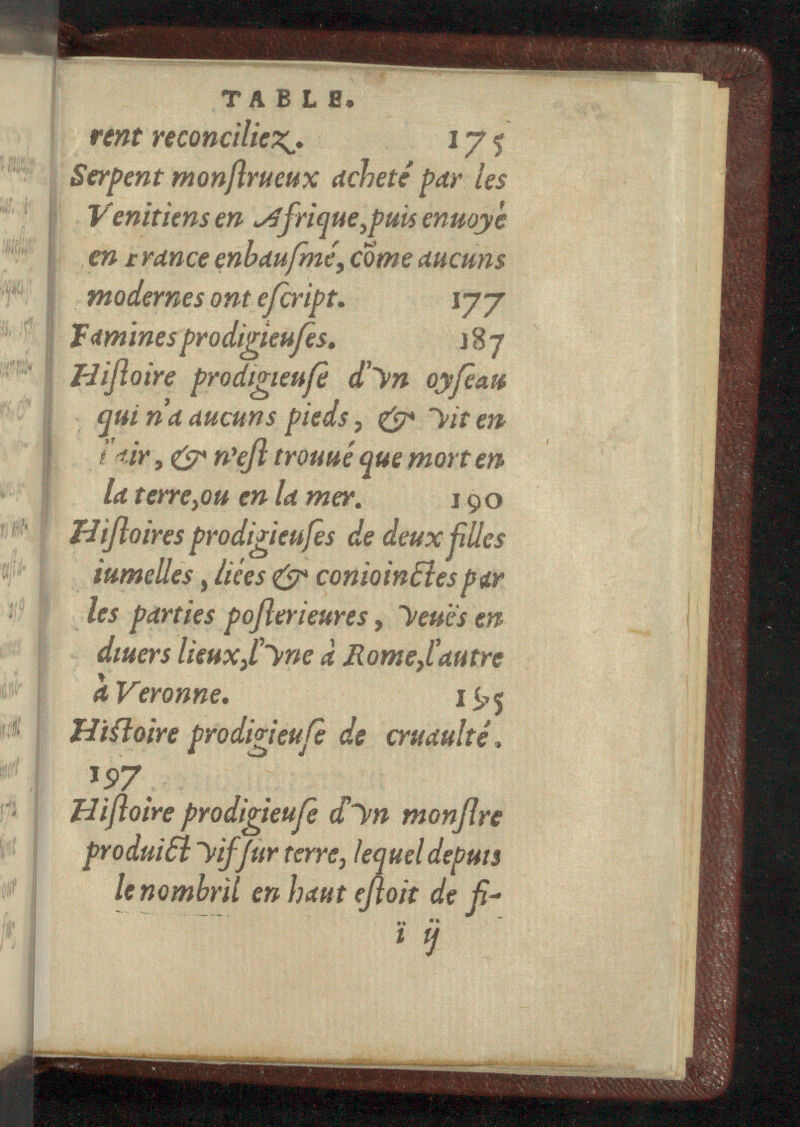 TABLE.
rent reconciliez. 175
Serpent monſtrueux acheté par les
Venitiens en Afrique, puis enuoyé
en France enbauſmé, cõme aucuns
modernes ont eſcript. 177
Famines prodigieuſes. 187
Hiſtoire prodigieuſe d'vn oyſeau
qui n'a aucuns pieds, & vit en
l'air, & n'eſt trouué que mort en
la terre, ou en la mer. 190
Hiſtoires prodigieuſes de deux filles
iumelles, liées & conioinctes par
les parties poſterieures, veuës en
diuers lieux, l'vne à Rome, l'autre
à Veronne. 195
Hiſtoire prodigieuſe de cruaulté.
197
Hiſtoire prodigieuſe d'vn monſtre
produict vif ſur terre, lequel depuis
le nombril en haut eſtoit de fi-
ï ij